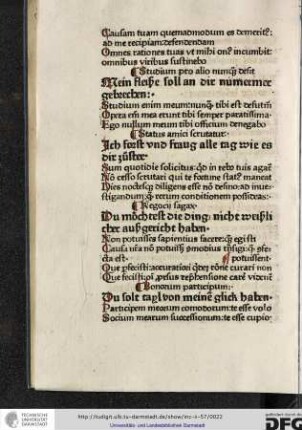 Causam tuam quemadmodum es demerit⁹:
ad me recipiam: defendendam
Omnes rationes tuas vt mihi onꝰ incumbit:
omnibus viribus sustinebo
¶ Studium pro alio nunqȝ desit
Mein fleiße soll an dir nummermee
gebrechen:·
Studium enim meum: nunqȝ tibi est defuturū
Opera em̄ mea erunt tibi semper paratissima
Ego nullum meum tibi officium denegabo
¶ Status amici scrutatur·
Ich forst vnd fraug alle tag wie es
dir zůstee·
Sum quotidie solicitus: qd in rebꝰ tuis agat̄
Nō cesso scrutari qui te fortune statꝰ maneat
Dies noctesqȝ diligens esse nō desino: ad inue-
stigandum: qȝ rerum conditionem possideas:·
¶ Negocij sagax·
Du möchtest die ding: nicht weißli
cher außgericht haben·
Non potuisses sapientius facere: qȝ egisti
Causa nr̄a nō potuiss₃ ꝓfecta est·
¶ potuissent·
Que ꝑfecisti: accuratiori
Que fecisti:
¶ Bonorum participium:·
Du solt tayl von meinē glick haben·
Participem mearum comodorum: te esse volo
Socium mearum successionum: te esse cupio
TECHNISCHE UNIVERSITÄT DARMSTADT
http://tudigit.ulb.tu-darmstadt.de/show/inc-ii-57/0022
Universitäts- und Landesbibliothek Darmstadt
gefördert durch die
DFG